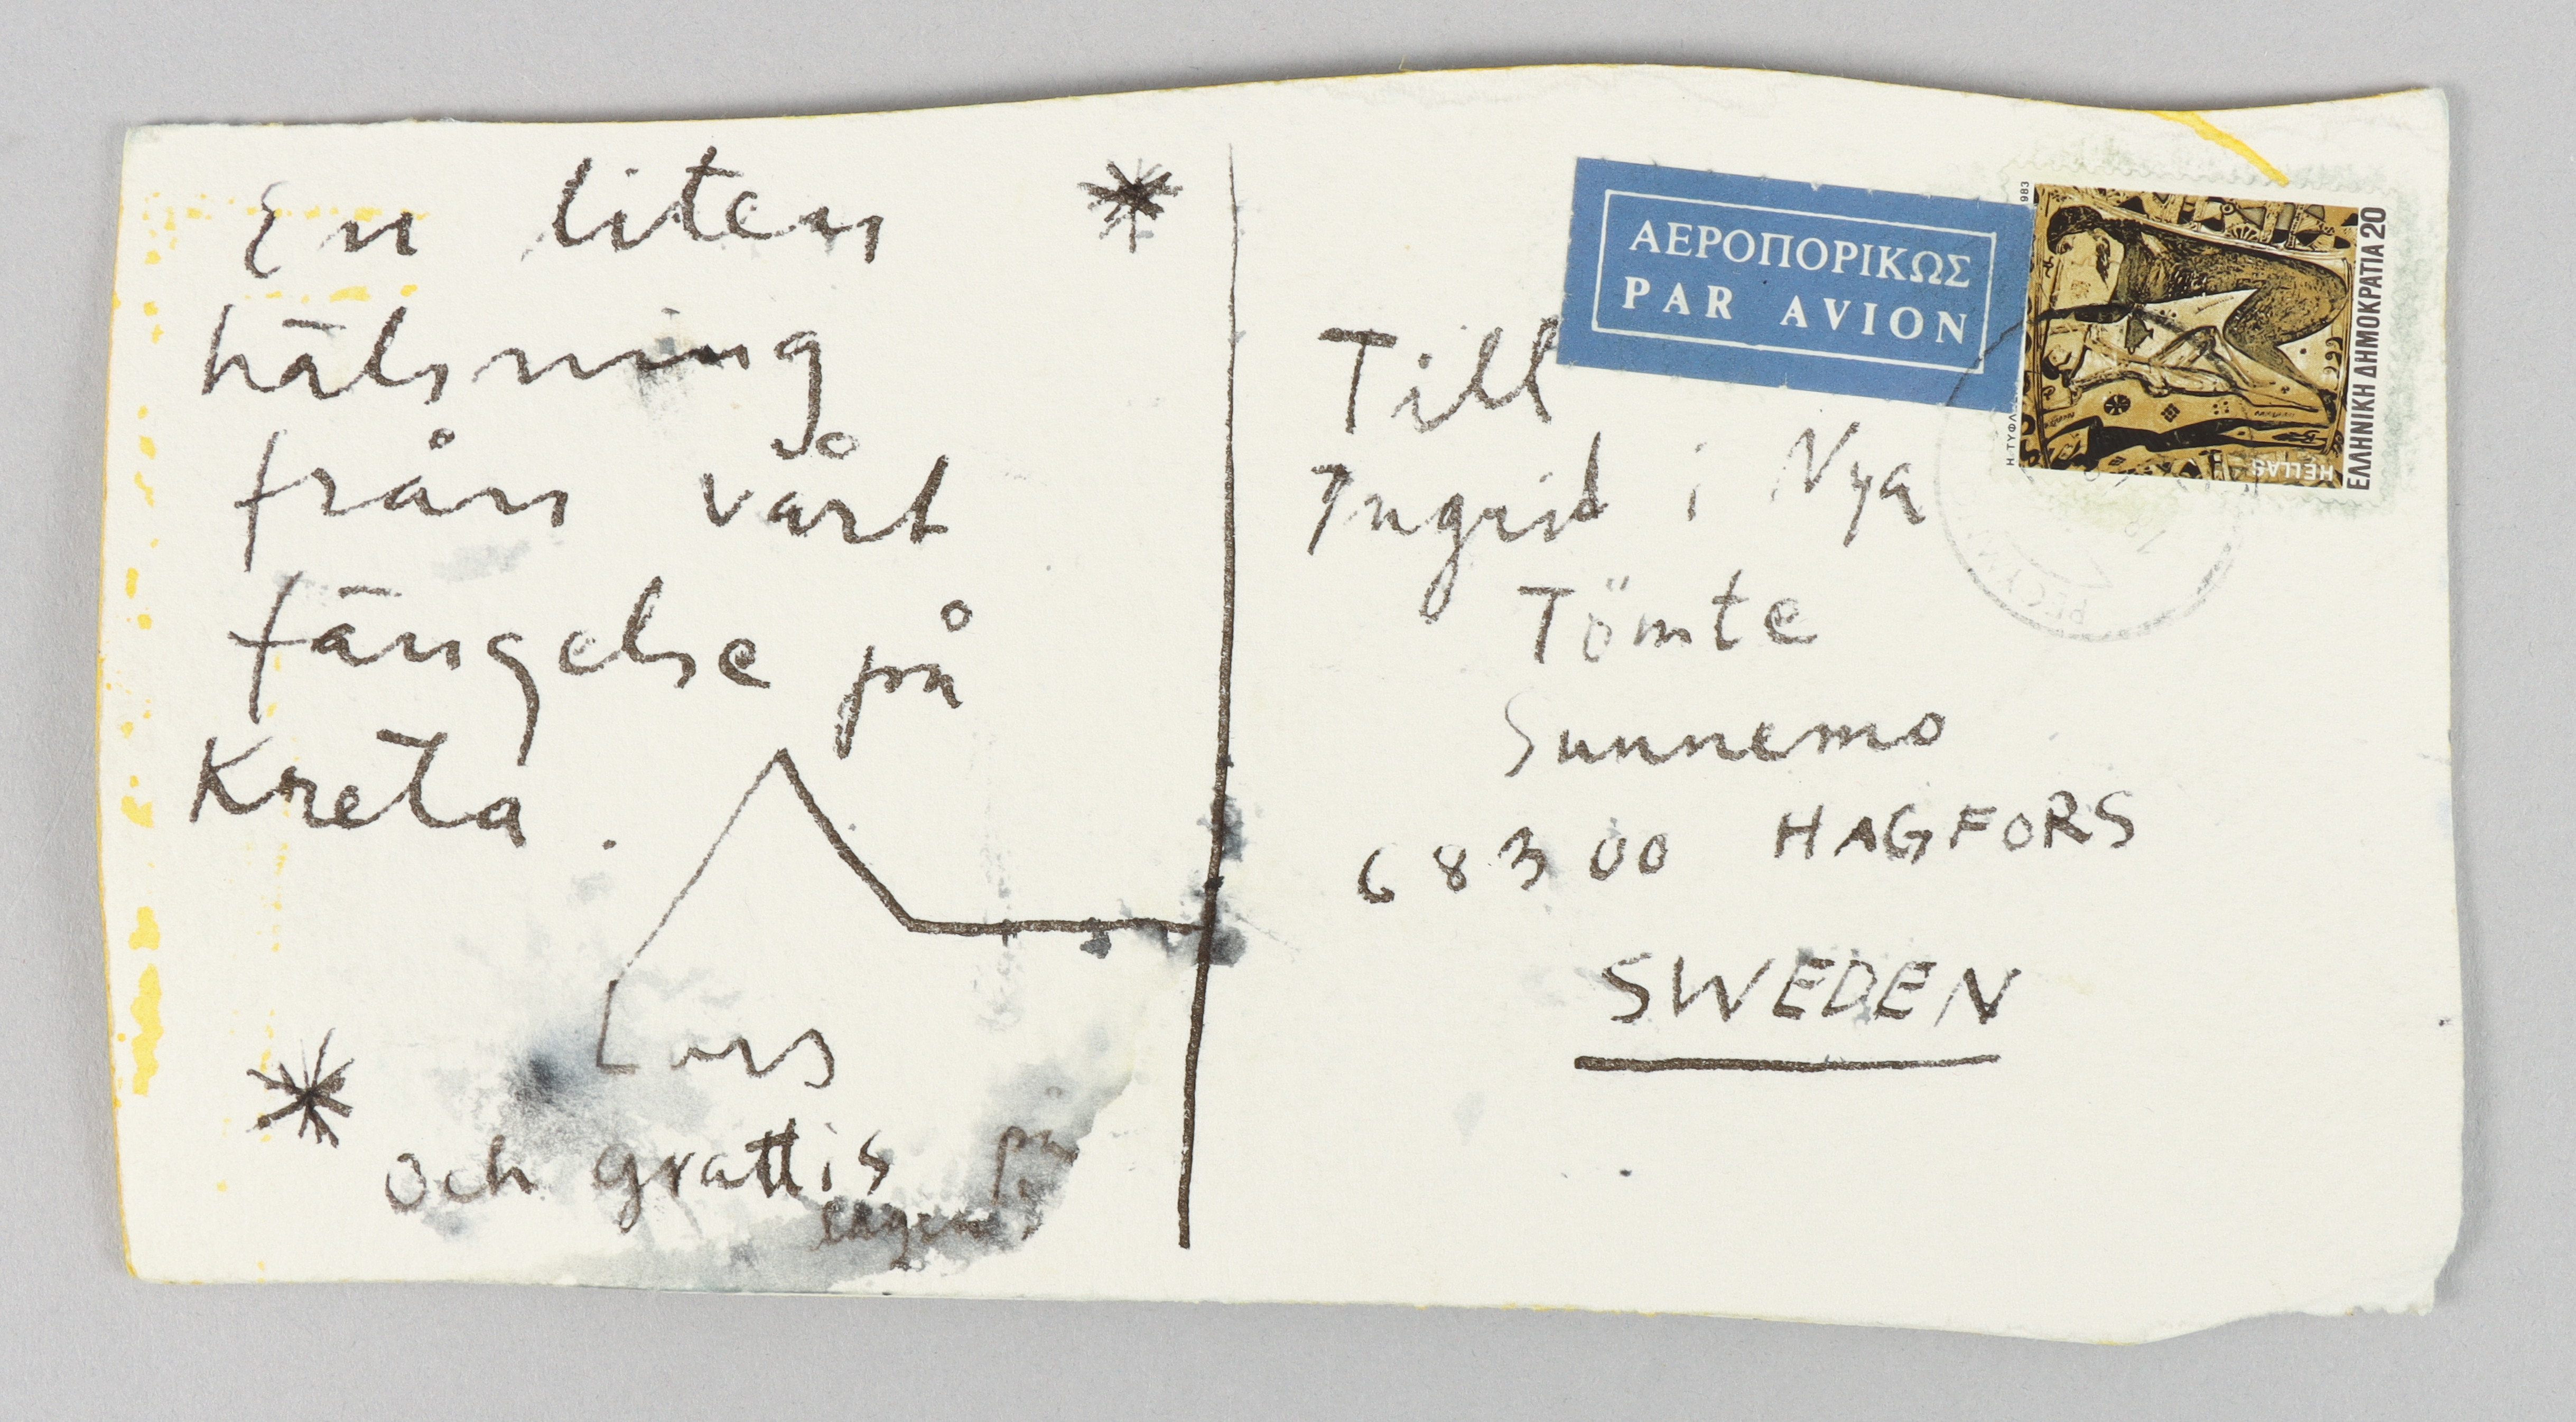 En liten
hälsning
från vårt
fängelse på
Kreta.
Lars
och grattis på
Till
Ingrid i Nya
Tömte
Sunnemo
683 00 HAGFORS
SWEDEN
ΑΕΡΟΠΟΡΙΚΩΣ
PAR AVION
ΕΛΛΗΝΙΚΗ ΔΗΜΟΚΡΑΤΙΑ 20
HELLAS